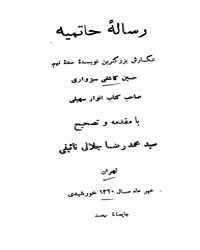 رسالهٔ حاتمیه
نگارش بزرگترین نویسندهٔ سدهٔ نهم
حسین کاشفی سبزواری
صاحب کتاب انوار سهیلی
با مقدمه و تصحیح
سید محمد رضا جلالی نائینی
تهران
مهر ماه سال ۱۳۲۰ خورشیدی
چاپخانهٔ